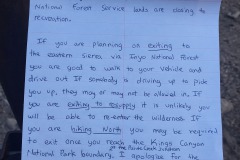 National Forest Service lands are closing to
recreation.
If you are planning on exiting to
the eastern sierra via Inyo National Forest
you are good to walk to your vehicle and
drive out. If somebody is driving up to pick
you up, they may or may not be allowed in. If
you are exiting to resupply it is unlikely you
will be able to re-enter the wilderness. If
you are hiking North you may be required
to exit once you reach the Kings Canyon
National Park boundary. I apologize for the